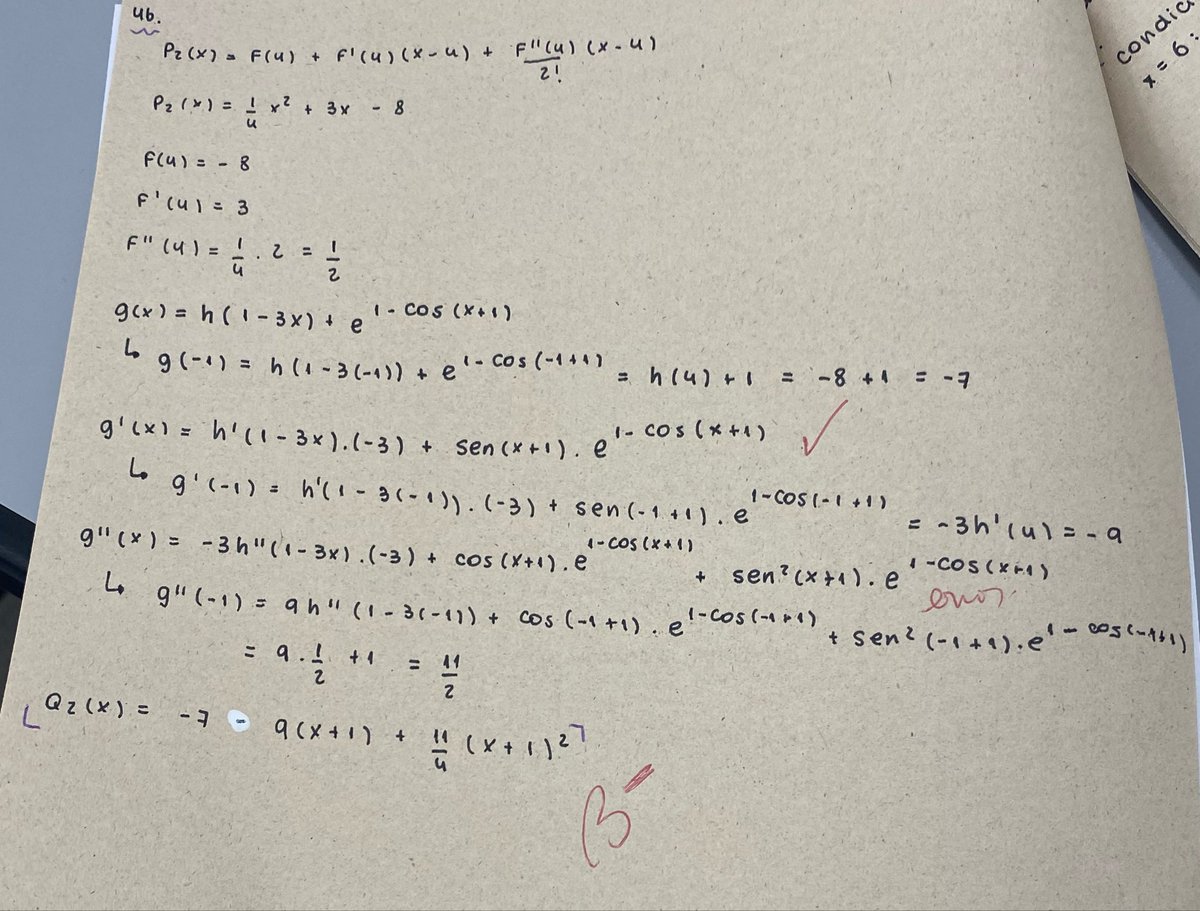 4b.
P₂(x) = F(4) + F'(4)(x-4) + F''(4)/2! (x-4)
P₂(x) = 1/4 x² + 3x - 8
F(4) = - 8
F'(4) = 3
F''(4) = 1/4 . 2 = 1/2
g(x) = h(1-3x) + e^(1-cos(x+1))
↳ g(-1) = h(1-3(-1)) + e^(1-cos(-1+1)) = h(4) + 1 = -8 + 1 = -7
✓
g'(x) = h'(1-3x).(-3) + sen(x+1). e^(1-cos(x+1))
↳ g'(-1) = h'(1-3(-1)).(-3) + sen(-1+1). e^(1-cos(-1+1)) = -3h'(4) = -9
g''(x) = -3h''(1-3x).(-3) + cos(x+1). e^(1-cos(x+1)) + sen²(x+1). e^(1-cos(x+1))
error
↳ g''(-1) = 9h''(1-3(-1)) + cos(-1+1). e^(1-cos(-1+1)) + sen²(-1+1). e^(1-cos(-1+1))
= 9. 1/2 + 1 = 11/2
Q₂(x) = -7 - 9(x+1) + 11/4 (x+1)²
B-
condic
x = 6: